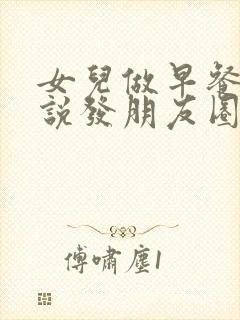 女兒做早餐
說發朋友圈
傅嘯塵1